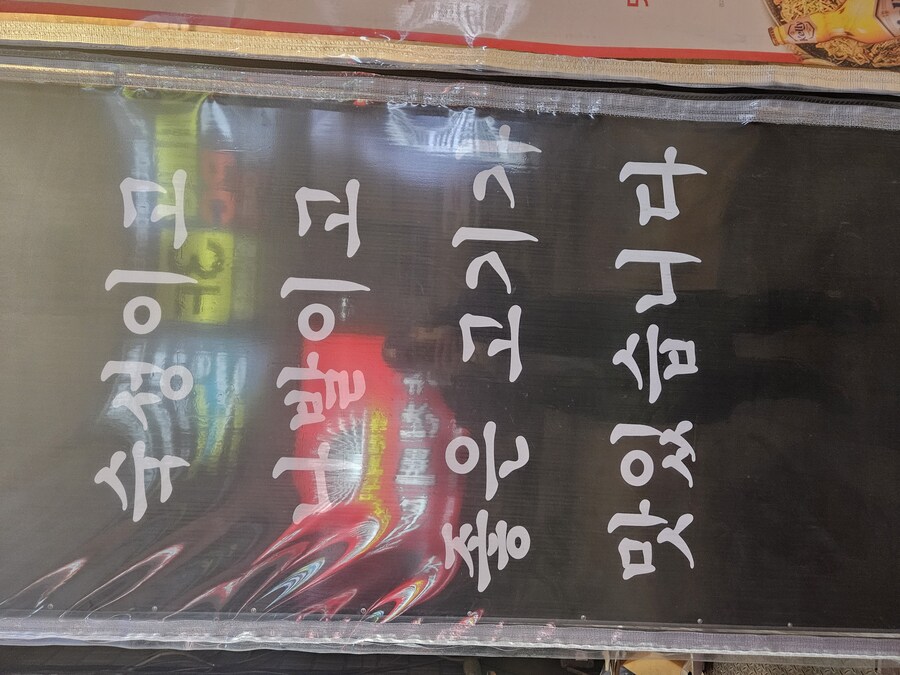 숙성이고
나발이고
좋은 고기가
맛있습니다
Kelly